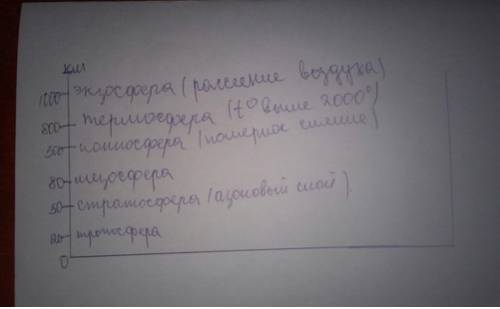 км
1000 экзосфера (рассеение воздуха)
800 термосфера (t° выше 2000°)
500 ионносфера (полярное сияние)
80 мезосфера
50 стратосфера (азоновый слой)
20 тропосфера
0